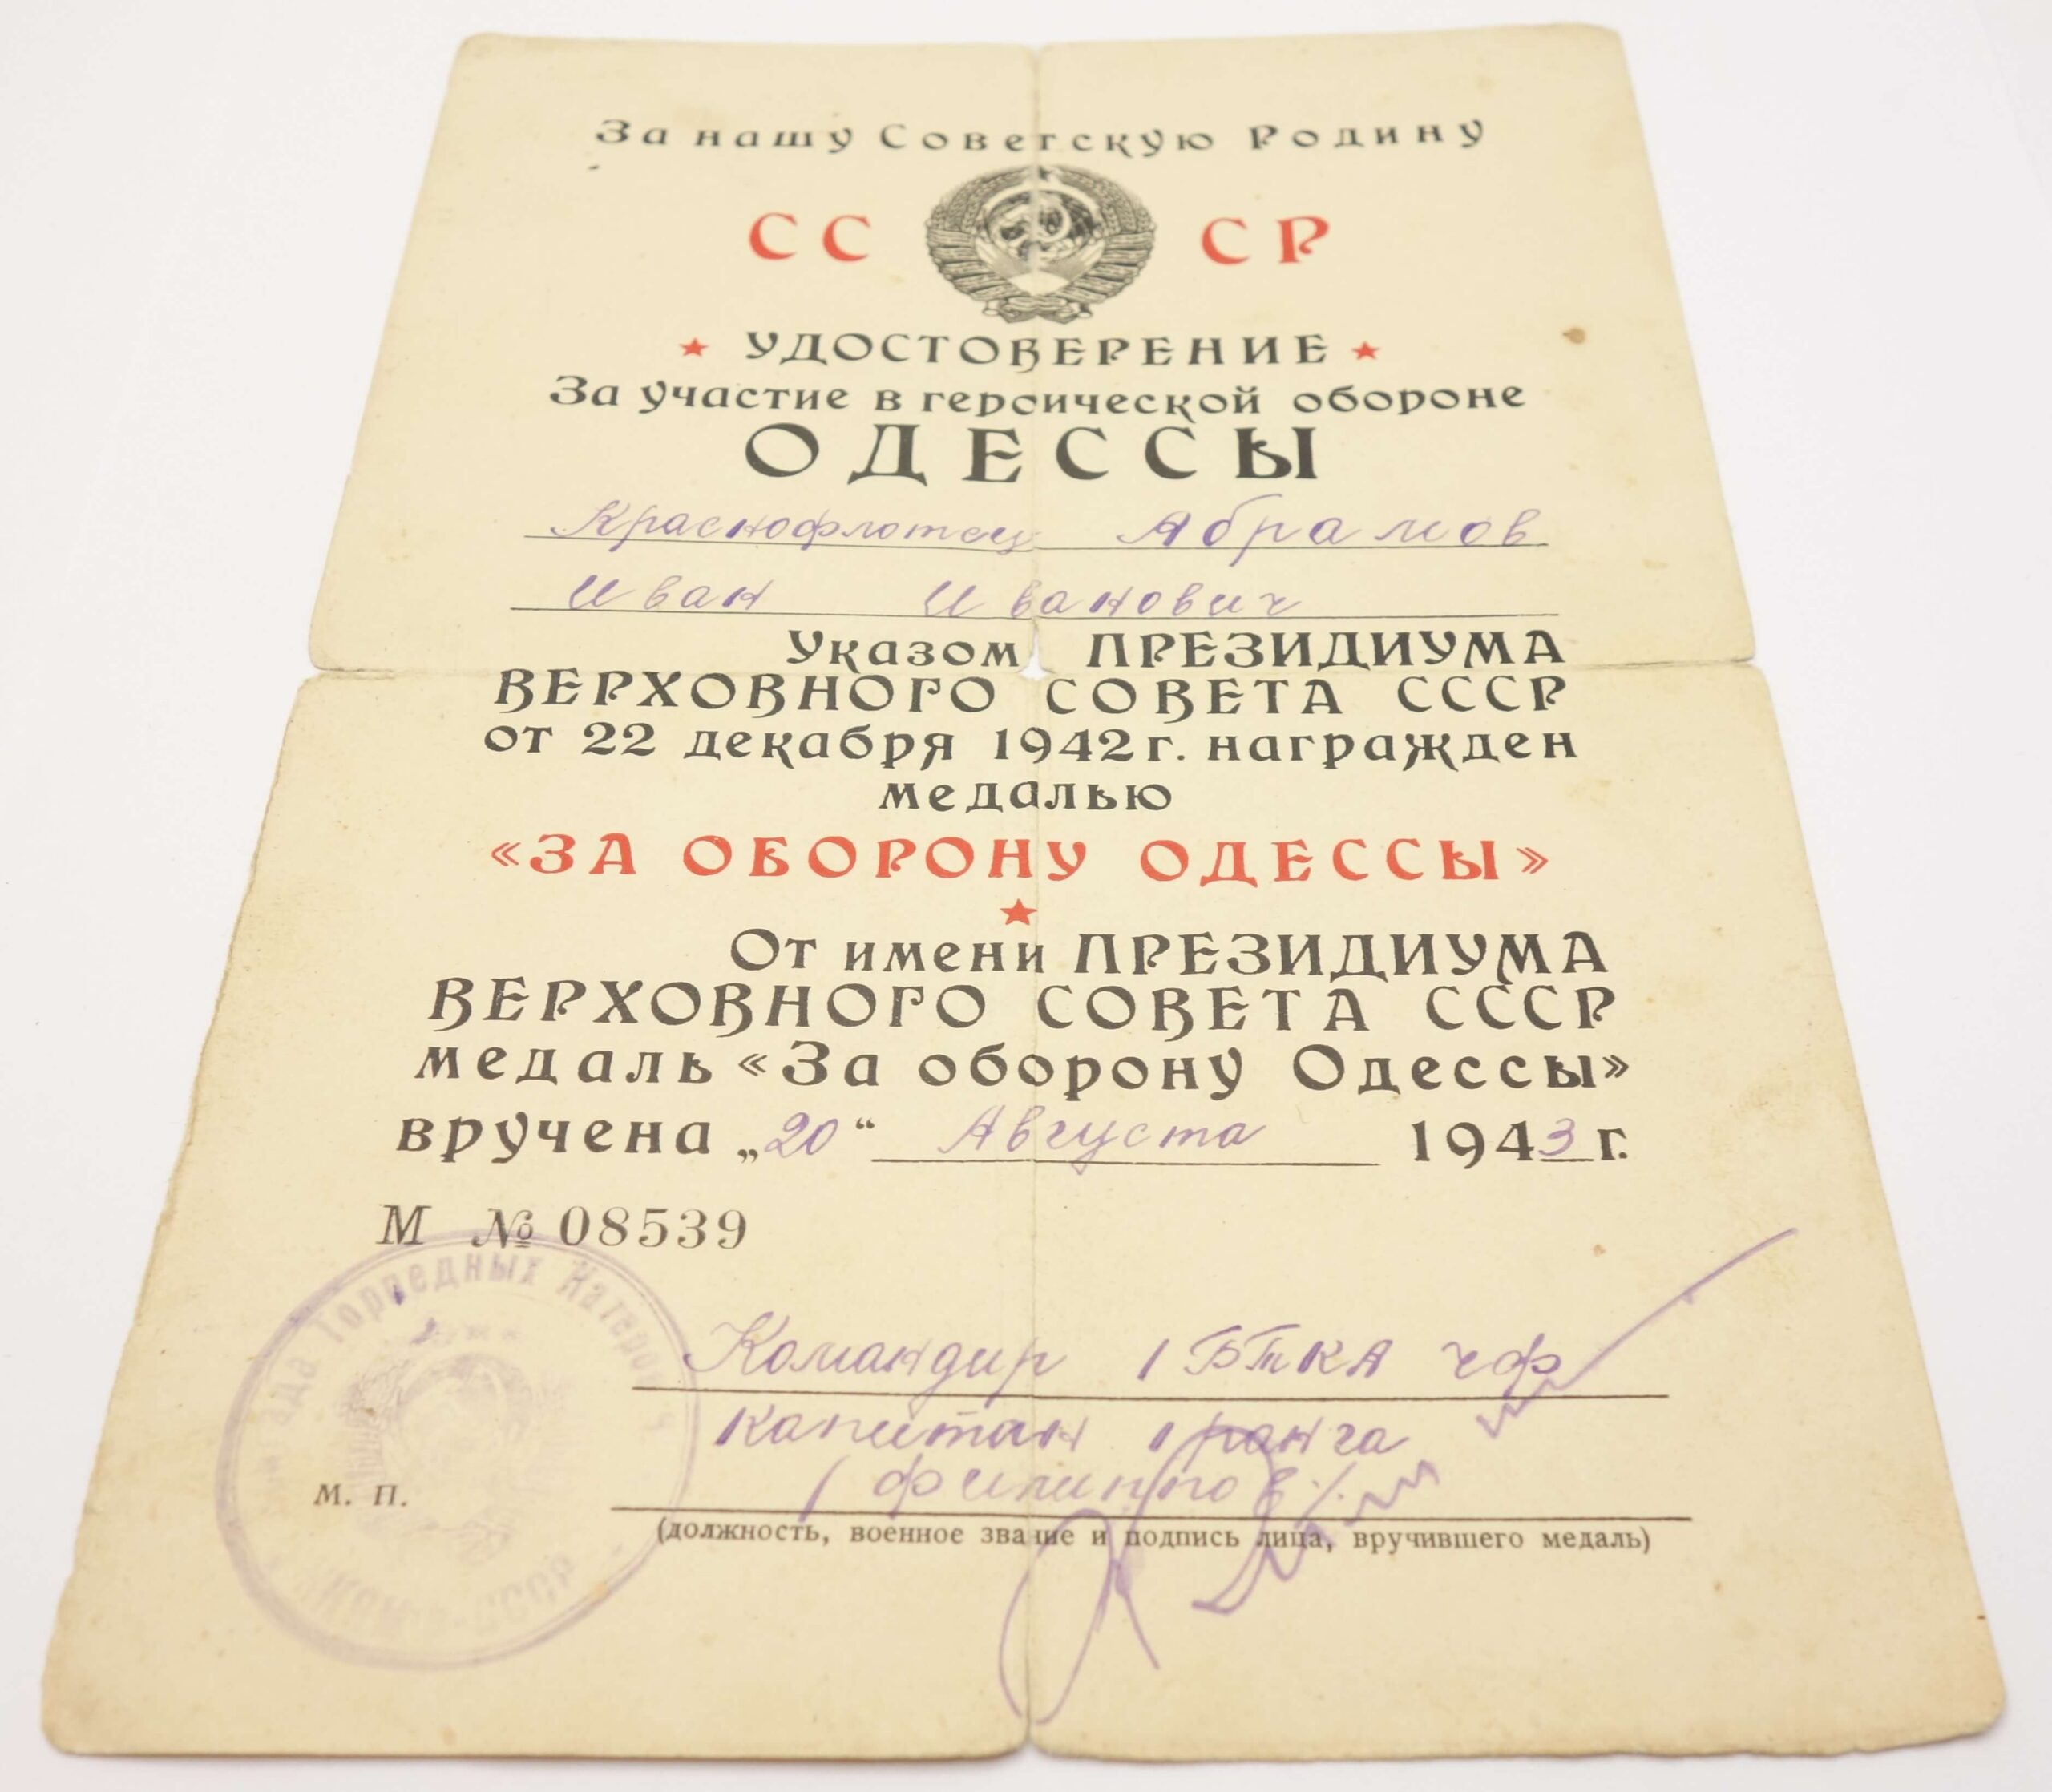 За нашу Советскую Родину
СС СР
УДОСТОВЕРЕНИЕ
За участие в героической обороне
ОДЕССЫ
Краснофлотец Абрамов
Иван Иванович
Указом ПРЕЗИДИУМА
ВЕРХОВНОГО СОВЕТА СССР
от 22 декабря 1942 г. награжден
медалью
«ЗА ОБОРОНУ ОДЕССЫ»
От имени ПРЕЗИДИУМА
ВЕРХОВНОГО СОВЕТА СССР
медаль «За оборону Одессы»
вручена „20“ Августа 1943 г.
М № 08539
Торпедных Катеров
СССР
Командир 1 БТКА ЧФ
капитан 1 ранга
/Филиппов/
М. П.
(должность, военное звание и подпись лица, вручившего медаль)